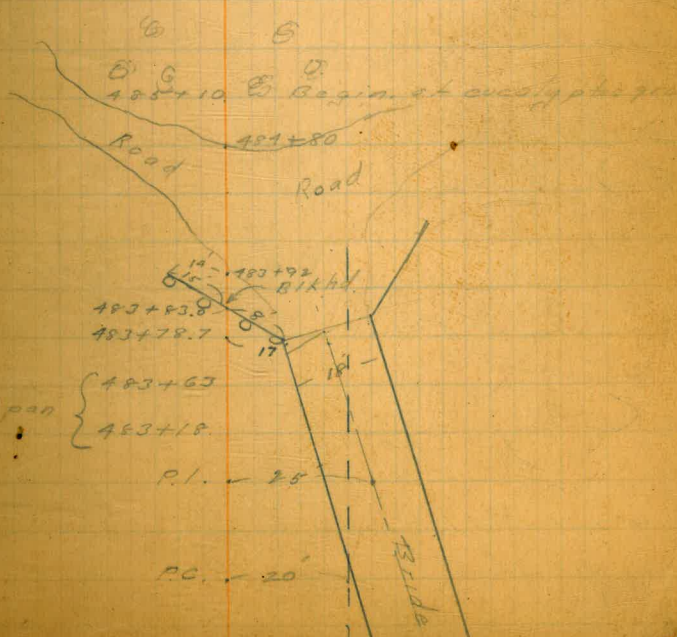 485+10 Begin. at eucalyptus
484+80
Road
Road
14
15
483+92
Blkhd.
483+83.8
8'
483+78.7
17
18'
483+63
pan
483+18
P.I. 25'
Bridge
P.C. 20'